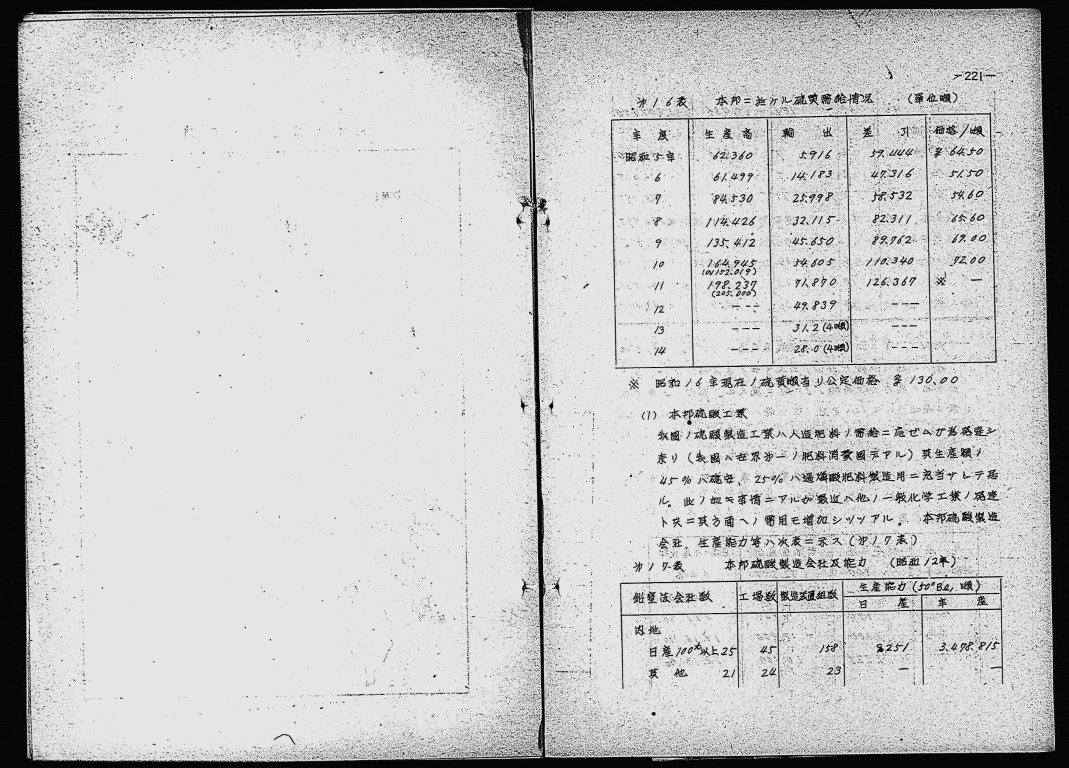 —221—
第16表 本邦ニ於ケル硫黄需給情況 (單位瓲)
年度 生産高 輸出 差引 価格/瓲
昭和5年 62.360 5.916 57.444 ¥ 64.50
6 61.499 14.183 47.316 51.50
7 84.530 25.998 58.532 54.60
8 114.426 32.115 82.311 65.60
9 135.412 45.650 89.762 69.00
10 164.945 54.605 110.340 72.00
(152.019)
11 198.237 71.870 126.367 ※ —
(205.000)
12 --- 49.839 ---
13 --- 31.2 (4瓲) ---
14 --- 28.0 (4瓲) ---
※ 昭和16年現在ノ硫黄瓲当リ公定価格 ¥ 130.00
(1) 本邦硫酸工業
我國ノ硫酸製造工業ハ人造肥料ノ需給ニ応ゼムガ為発達シ
来リ(我國ハ世界第一ノ肥料消費國デアル)其生産額ノ
45%ハ硫安、25%ハ過燐酸肥料製造用ニ充当サレテ居
ル。此ノ如キ事情ニアルガ最近ハ他ノ一般化学工業ノ発達
ト共ニ其方面ヘノ需用モ増加シツツアル。 本邦硫酸製造
会社、生産能力等ハ次表ニ示ス(第17表)
第17表 本邦硫酸製造会社及能力 (昭和12年)
鉛室法会社数 工場数 製造装置組数 生産能力(50°Bé, 瓲)
日産 年産
内地
日産100t以上 25 45 158 8251 3.478.815
其他 21 24 23 — —